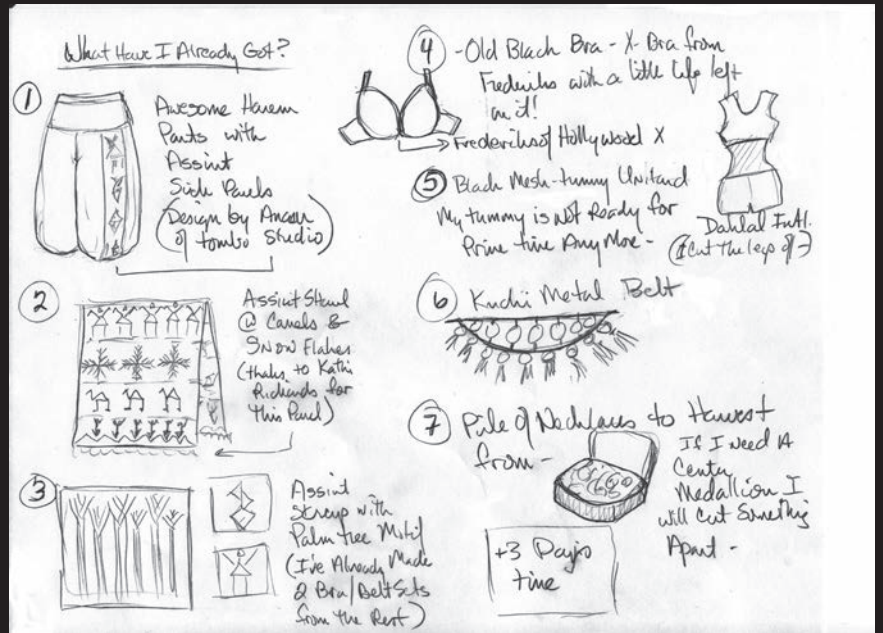 What Have I Already Got?
1
Awesome Harem
Pants with
Assiut
Side Panels
(Design by
of tombo Studio)
2
Assiut Shawl
@ Camels &
SNOW Flakes
(thanks to Kathi
Richards for
This Panel)
3
Assiut
Scrap with
Palm tree Motif
(I've Already Made
2 Bra/Belt Sets
from the Rest)
4
-Old Black Bra - X-Bra from
Fredericks with a little life left
on it!
Fredericks of Hollywood X
5 Black Mesh-tummy Unitard
My tummy is Not Ready for
Prime time Any More -
Dahlal Intl.
(I Cut The legs off)
6 Kuchi Metal Belt
7 Pile of Necklaces to Harvest
from -
If I Need A
Center
Medallion I
will Cut Something
Apart -
+3 Days
time